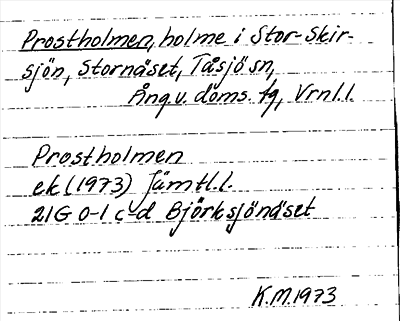 Prostholmen, holme i Stor-Skir-
sjön, Stornäset, Tåsjö sn,
Ång.v. doms. tg, Vrnl.l.
Prostholmen
ek (1973) Jämtl.l.
21G 0-1 c-d Björksjönäset
K.M.1973